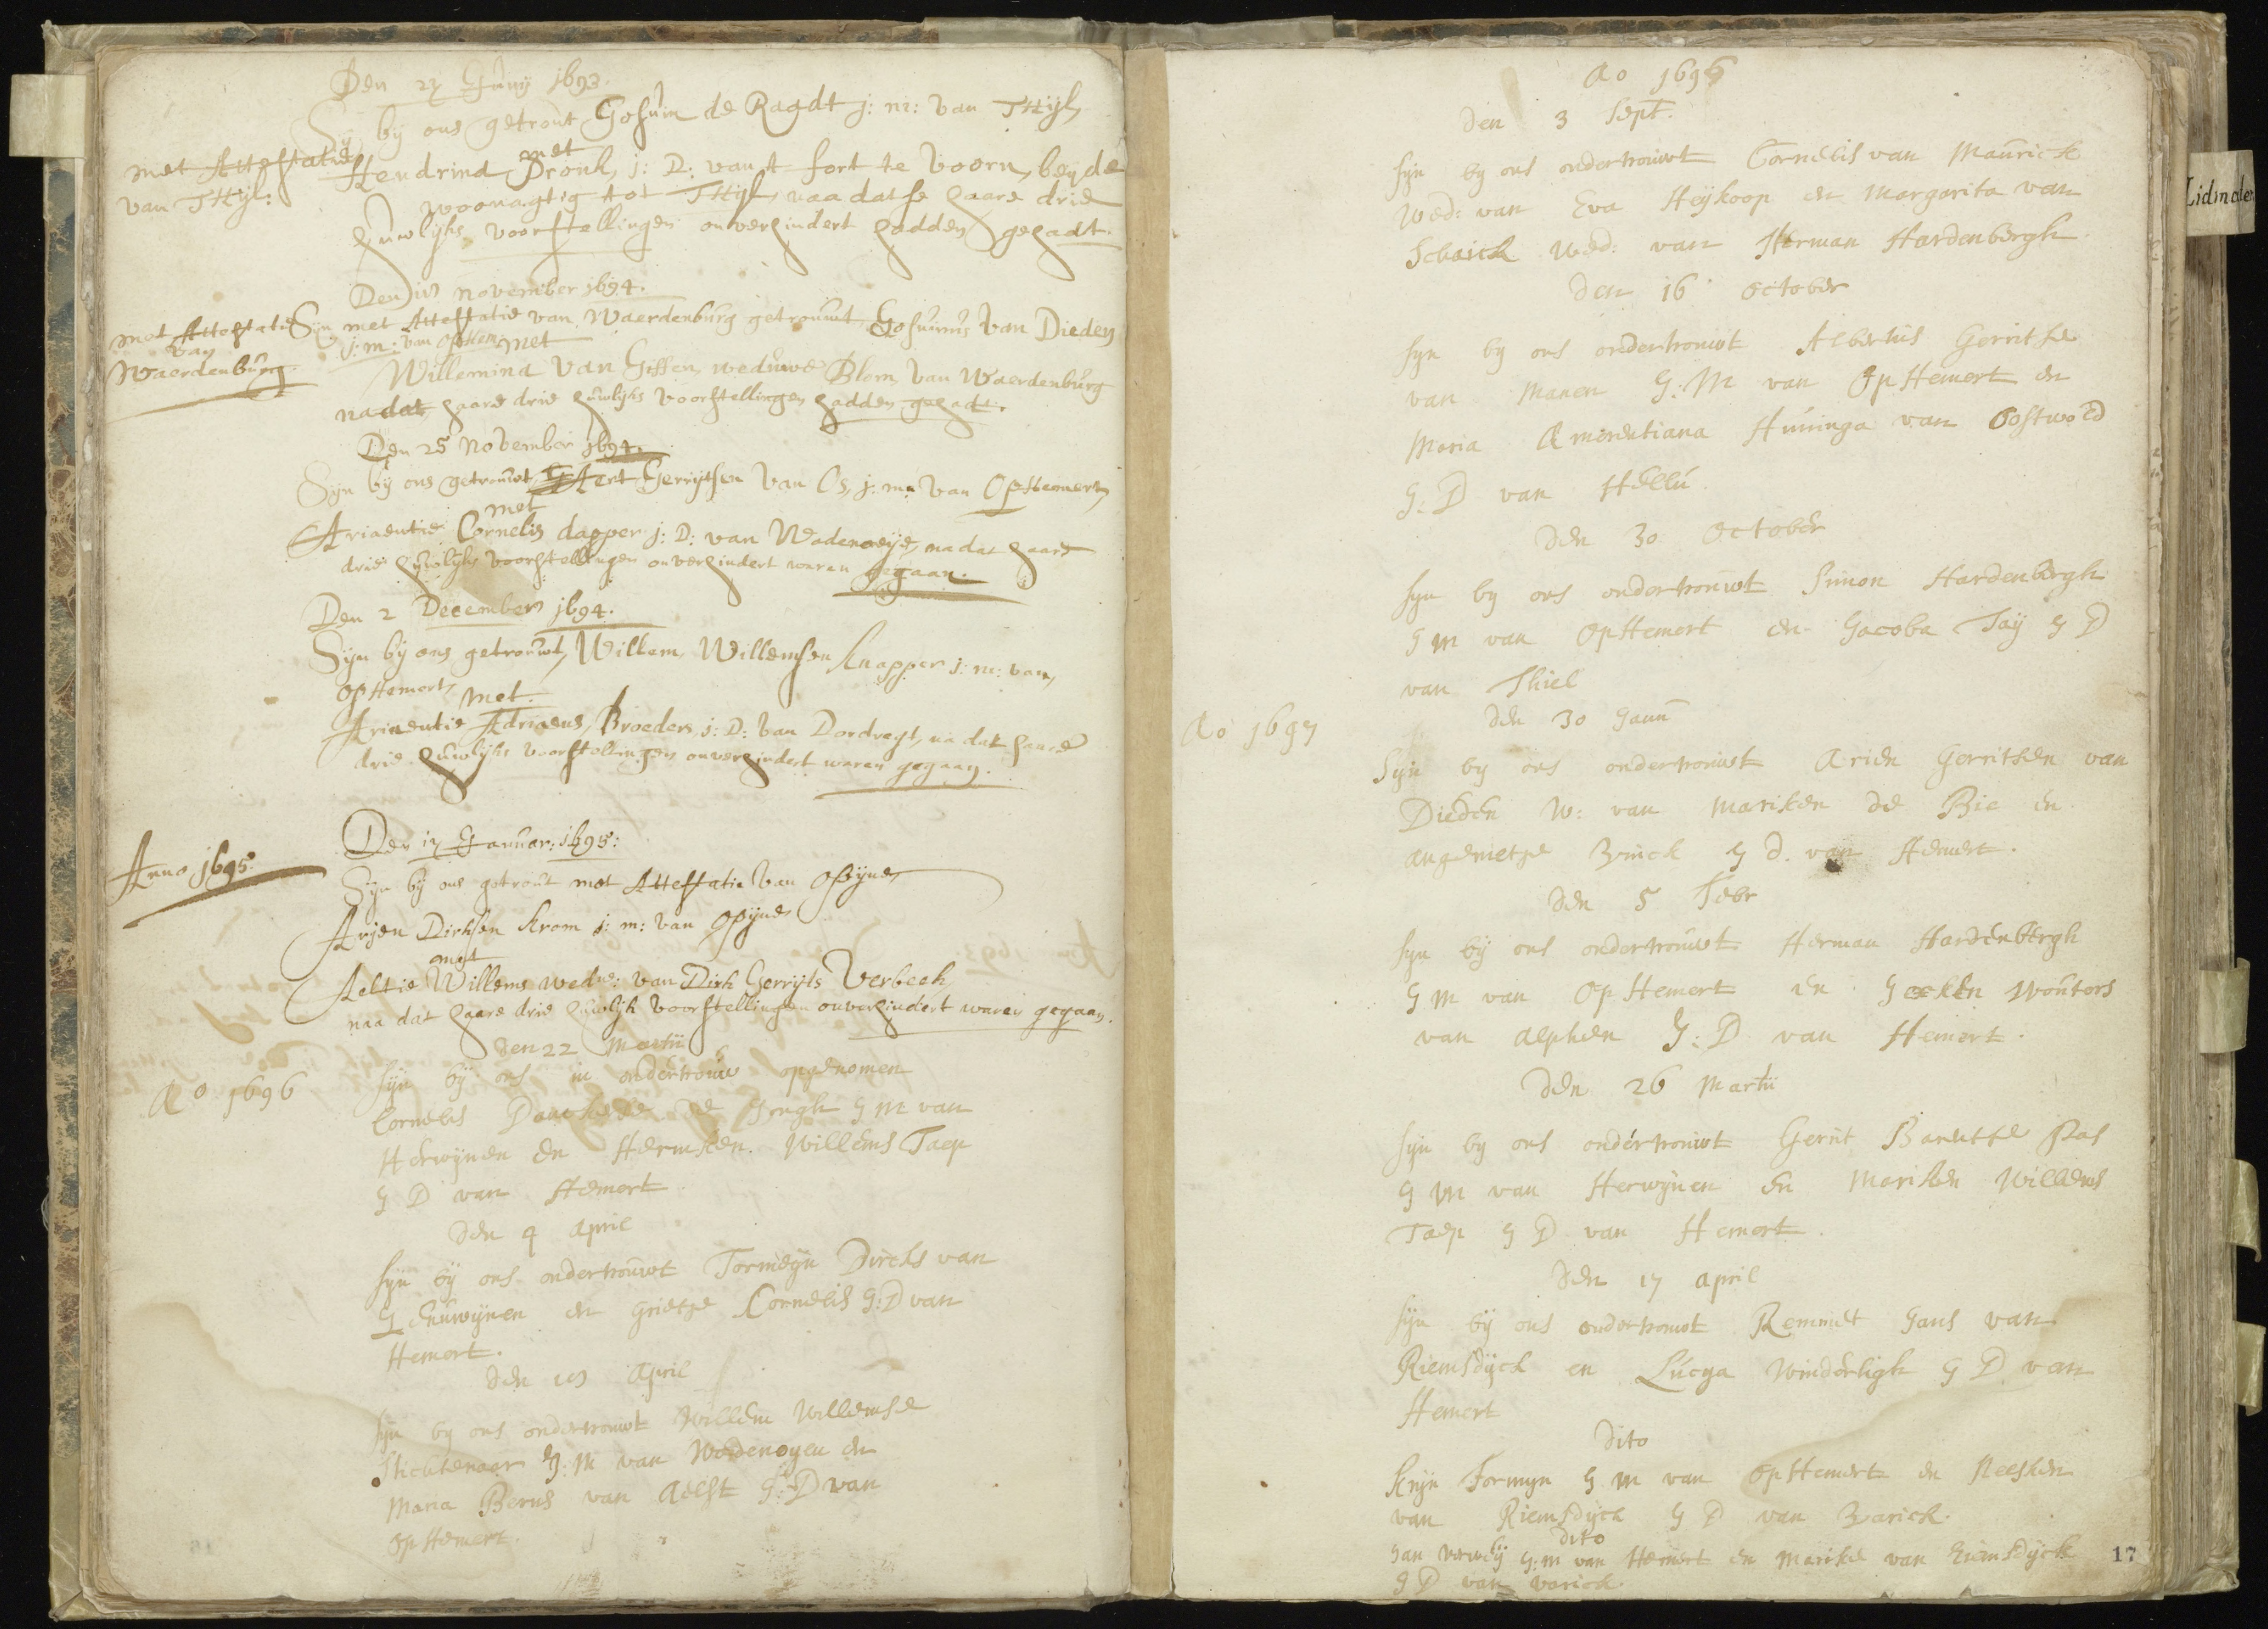 Den 27 Junij 1693.
Sijn bij ons getrout Gosuin de Raadt j: m: van THijl,
met
met Attestatie Hendrina Pronk, j: D: van 't fort te Voorn, beyde
van THijl: woonagtig tot THijl, naa datse haare drie
huwlijks voorstellingen onverhindert hadden gehadt.
Den November 1694.
met Attestatie Sijn met Attestatie van Waerdenburg getrouwt, Gosuinus Van Dieden
van j: m: van Ophem: met
Waerdenburg. Willemina Van Giffen, weduwe Blom, van Waerdenburg
nadat haare drie huwlijks voorstellingen hadden gehadt.
Den 25 November 1694.
Sijn bij ons getrouwt, Aert Gerrijtsen Van Os, j: m: van OpHemert,
met
Ariaentie Cornelis dapper j: D: van Wadenoeije, nadat haare
drie huwlijks voorstellingen onverhindert waren gegaan.
Den 2 December 1694.
Sijn bij ons getrouwt, Willem Willemsen Knapper j: m: van
OpHemert, met.
Ariaentie Adriaens, Broeders, j: D: van Dordregt, na dat haare
drie huwlijks voorstellingen onverhindert waren gegaan.
Anno 1695. Den 17 Januar: 1695:
Sijn bij ons getrout met Attestatie Van Opijnen
Arjen Dirksen Krom j: m: van Opijnen
met
Aeltie Willems wedue: van Dirk Gerrijts Verbeek,
naa dat haare drie huwlijk voorstellingen onverhindert waren gegaan.
den 22 Martii
Ao 1696 sijn bij ons in ondertrouw opgenomen
Cornelis de Jongh J M van
Herwijnen en Hermken Willems Taep
J D van Hemert
den 4 april
sijn bij ons ondertrouwt Tormeijn Dircks van
Leeuwijnen en grietje Cornelis J: D van
Hemert.
den april
sijn bij ons ondertrouwt Willem Willemse
Stichtenaar J: M van Wadenoyen en
Maria Berns van Aelst J: D van
OpHemert.
Ao 1696
den 3 Sept.
sijn bij ons ondertrouwt Cornelis van Maurick
Wed: van Eva Heijkoop en Margarita van
Schaick Wed: van Herman Hardenbergh
den 16 October
sijn bij ons ondertrouwt Albertus Gerritse
van Manen J: M van OpHemert en
Maria Amerentiana Huninga van Oostwold
J: D van Hellu
den 30 October
sijn bij ons ondertrouwt Simon Hardenbergh
J M van OpHemert en Jacoba Taij J D
van Thiel
Ao 1697 den 30 Janu
Sijn bij ons ondertrouwt Arien Gerritsen van
Dieden W: van Mariken de Bie en
angenietje Buick J d. van Hemert.
den 5 Febr
sijn bij ons ondertrouwt Herman Hardenbergh
J M van OpHemert en Jeeken Woutors
van Alphen J: D van Hemert.
den 26 Martii
sijn bij ons ondertrouwt Gerrit Barentse Bas
J M van Herwijnen en Mariken Willems
Taep J D van Hemert.
den 17 april
sijn bij ons ondertrouwt Remmelt Jans van
Riemsdijck en Lucya Winderligh J D van
Hemert
Dito
Krijn Tormyn J M van OpHemert en Neesken
van Riemsdijck J D van Varick.
Dito
Jan Verweij J: M van Hemert en Marike van Riemsdijck
J D van Varick.
17
Lidmaten